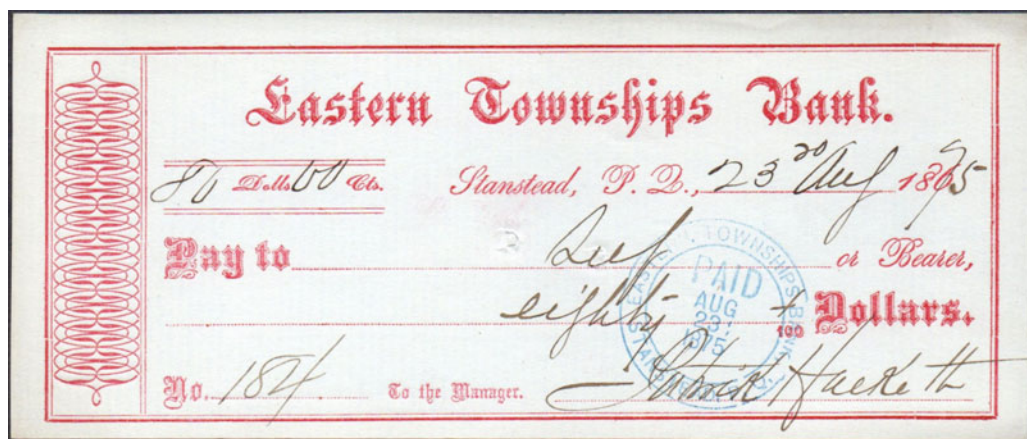 Eastern Townships Bank.
80 Dolls 00 Cts. Stanstead, P. Q., 23rd Aug 1875
Pay to Self or Bearer,
eighty 100 Dollars.
EASTERN TOWNSHIPS BANK
PAID
AUG
23
1875
No. 184 To the Manager. Patrick Hackett